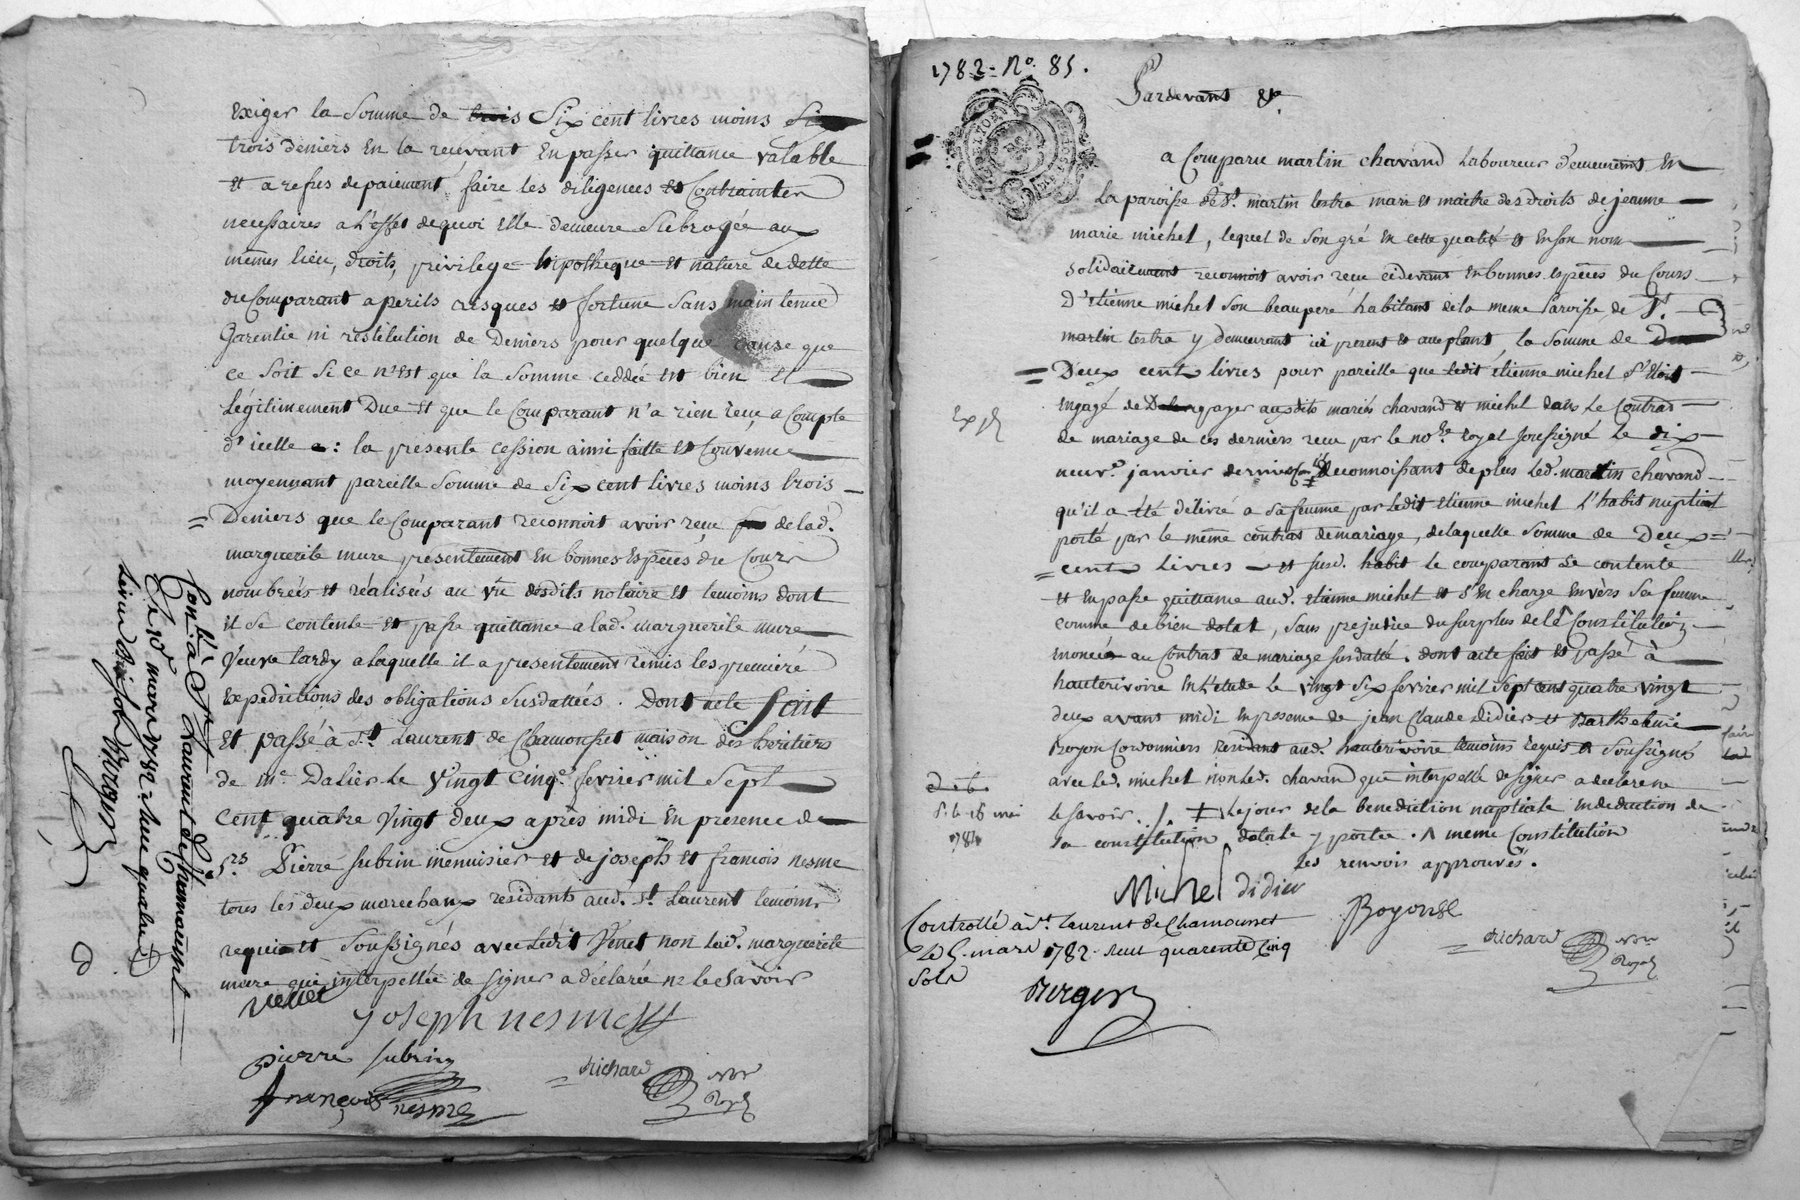 Exiger la Somme de trois Six cent livres moins Six
trois deniers En la recevant En passer quittance valable
Et a refus depaiement faire les diligences et Contraintes
necessaires a L'effet dequoi Elle demeure Subrogée aux
mêmes lieu, droits, privilege hipotheque Et nature de dette
du Comparant a perils risques et fortune Sans maintenue
Garentie ni restitution de Deniers pour quelque Cause que
ce Soit Si ce n'est que la Somme ceddée est bien Et
Légitimement Due Et que le Comparant n'a rien reçu a Compte
d'icelle : la presente cession ainsi faitte et Convenue
moyennant pareille Somme de Six cent livres moins trois
Deniers que le Comparant reconnoit avoir reçu de lad.
marguerite mure presentement En bonnes Espèces du Cours
nombrées et réalisées au vu desdits notaire et temoins dont
il Se contente et passe quittance a lad. marguerite mure
Veuve tardy a laquelle il a presentement remis les première
Expeditions des obligations Susdattées. Dont acte Fait
Et passé à St. Laurent de Chamousset maison des heritiers
de me. Dalier le Vingt Cinq. fevrier mil Sept
Cent quatre Vingt deux après midi En presence de
Srs Pierre Subrin menuisier et de joseph et francois nesme
tous les deux marechaux residants aud. St. Laurent temoins
requis et Soussignés avec ledit Venet non lad. marguerite
mure qui interpellée de signer a déclarée ne le Savoir
Venet
joseph nesme
pierre subrin
Richard
francois nesme
nore Royal
Conlé à St Laurent de Chamousset
Le 10 mars 1782. Reçu quatre
Livres dix sols Berger
1782. No. 85.
Pardevant &
a Comparu martin chavand Laboureur demeurant En
La paroisse de St. martin lestra mari et maitre des droits de jeanne
marie michel, lequel de Son gré En cette qualité et En son nom
Solidairement reconnoit avoir reçu cidevant En bonnes Espèces du Cours
D'Etienne michel Son beaupere habitant de la meme Paroisse de St.
martin lestra y demeurant ici present et acceptant, la Somme de
Deux cent livres pour pareille que ledit étienne michel S'étoit
engagé de payer auxdits mariés chavand et michel dans Le Contrat
de mariage de ces derniers recu par le nore. royal soussigné Le dix
neuve. janvier dernier Reconnoissant deplus led. martin chavand
qu'il a été délivré a sa femme par ledit etienne michel L'habit nuptial
porté par le même contrat demariage, delaquelle Somme de Deux
cent Livres et susd. habit le comparant se contente
et En passe quittance aud. etienne michel et S'En charge Envers Sa femme
comme de bien dotal, Sans prejudice du Surplus de la Constitution
enoncée au Contrat de mariage Susdatté. dont acte fait et passé à
hauterivoire En L'étude Le Vingt Six fevrier mil Sept cent quatre vingt
deux avant midi En presence de jean Claude Didier et Barthelemie
Boyon Cordonniers residants aud. hauterivoire temoins requis et Soussignés
avec led. michel non led. chavand qui interpellé de signer a declaré ne
le Savoir. le jour de la benediction nuptiale en deduction de
la constitution dotale y portée. meme Constitution
les renvois approuvés.
Michel didier
Boyon
Controllé à St. Laurent de Chamousset
Le 5. mars 1782. Reçu quarente Cinq
Sols
Richard
nore Royal
Berger
Exp
16 mai
1784